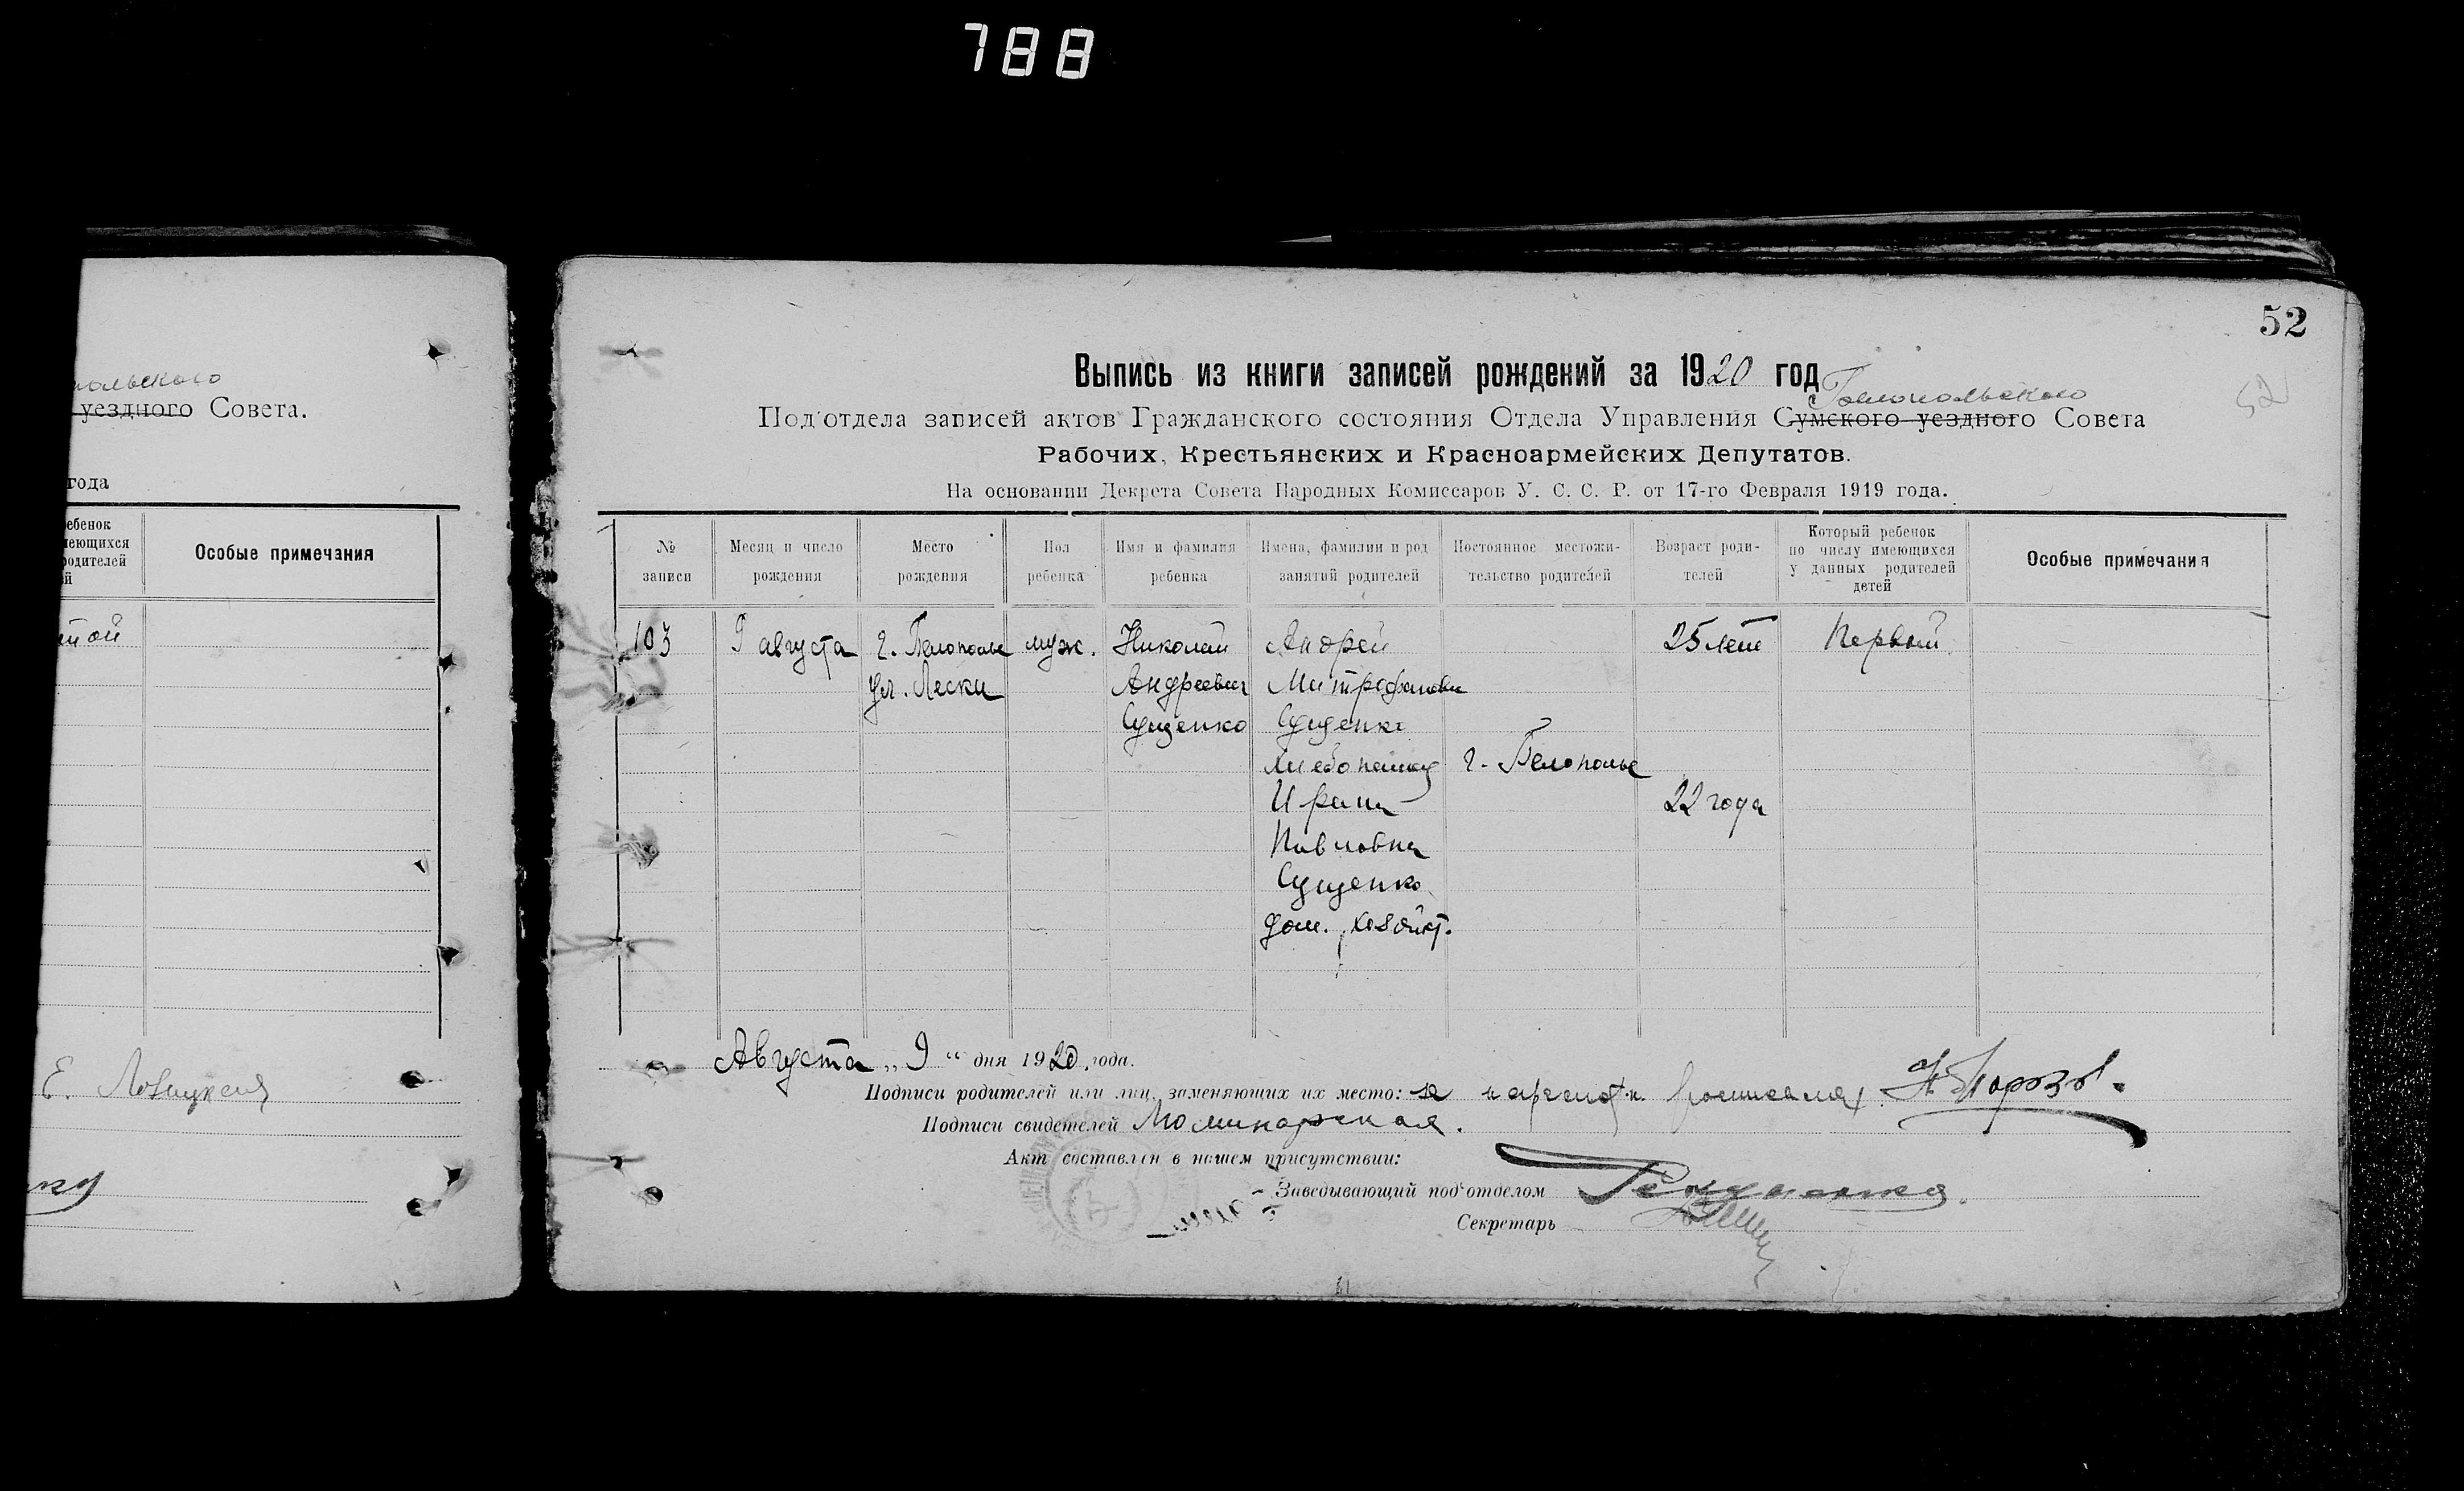 788
польского
уездного Совета.
года
ебенок
меющихся
родителей
й
Особые примечания
Е.
52
52
Выпись из книги записей рождений за 1920 год
Белопольского
Под'отдела записей актов Гражданского состояния Отдела Управления Сумского уездного Совета
Рабочих, Крестьянских и Красноармейских Депутатов.
На основании Декрета Совета Народных Комиссаров У. С. С. Р. от 17-го Февраля 1919 года.
№ записи
Месяц и число рождения
Место рождения
Пол ребенка
Имя и фамилия ребенка
Имена, фамилии и род занятий родителей
Постоянное местожительство родителей
Возраст родителей
Который ребенок по числу имеющихся у данных родителей детей
Особые примечания
103 9 августа г. Белополье муж. Николай Андрей 25 лет Первый
ул. Пески Андреевич Митрофанович
Сущенко Сущенко
Хлебопашец г. Белополье
Ирина 22 года
Павловна
Сущенко
дом. хозяйст.
Августа „ 9 “ дня 1920 года.
Подписи родителей или лиц, заменяющих их место: за неграмотн. Н. Морозъ.
Подписи свидетелей
Акт составлен в нашем присутствии:
Заведывающий под'отделом
Секретарь